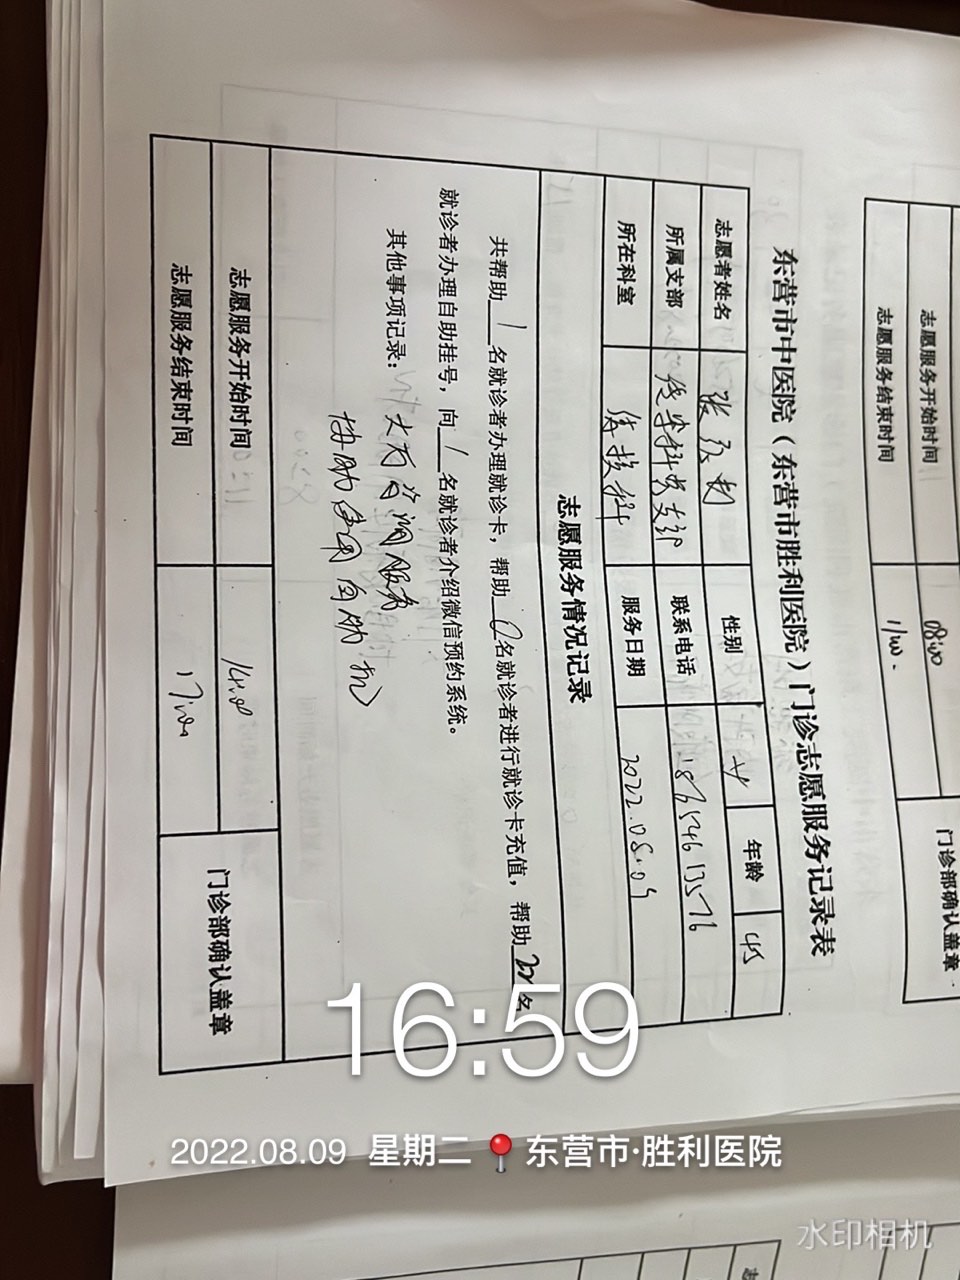 东营市中医院（东营市胜利医院）门诊志愿服务记录表
志愿者姓名 性别 女 年龄 45
所属支部 联系电话 18654613576
所在科室 服务日期 2022.08.09
志愿服务情况记录
共帮助1名就诊者办理就诊卡，帮助0名就诊者进行就诊卡充值，帮助22名
就诊者办理自助挂号，向1名就诊者介绍微信预约系统。
其他事项记录：
协助使用自助机
志愿服务开始时间 14:00 门诊部确认盖章
志愿服务结束时间 17:00
志愿服务开始时间 08:00 门诊部确认盖章
志愿服务结束时间 11:00.
16:59
2022.08.09 星期二 东营市·胜利医院
水印相机